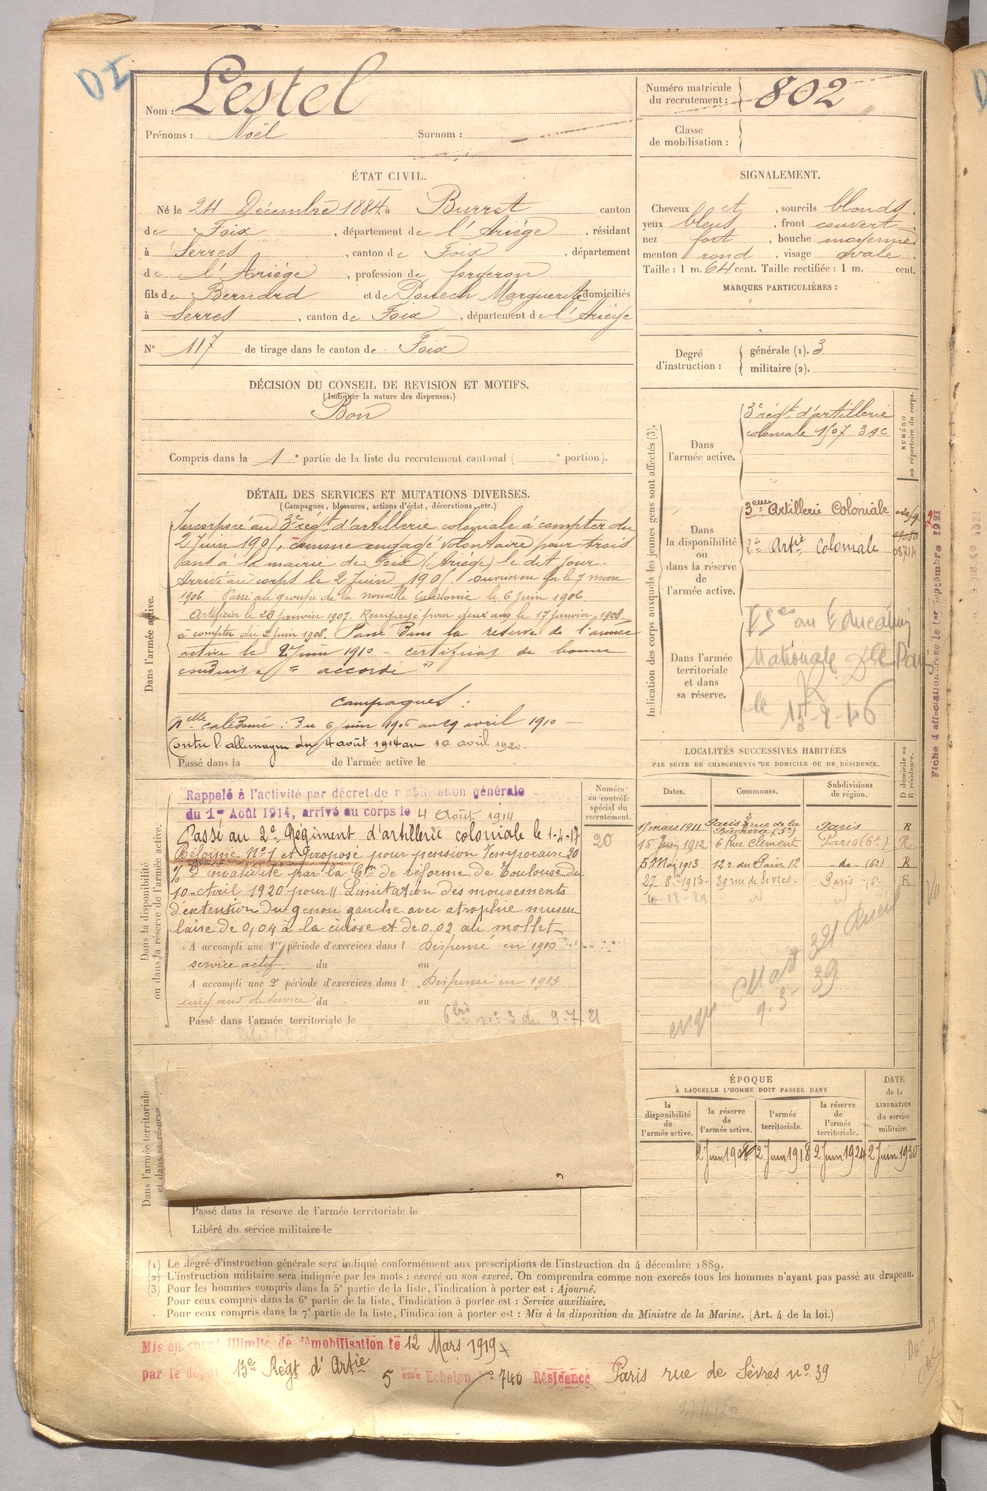 DI
Nom : Lestel
Prénoms : Noël Surnom :
Numéro matricule
du recrutement : 802
Classe
de mobilisation :
ÉTAT CIVIL.
Né le 24 Décembre 1884 à Burret canton
de Foix, département de l'Ariége, résidant
à Serres, canton de Foix, département
de l'Ariége, profession de forgeron
fils de Bernard et de Pouech Marguerite domiciliés
à Serres, canton de Foix, département de l'Ariége
N° 117 de tirage dans le canton de Foix
SIGNALEMENT.
Cheveux et, sourcils blonds.
yeux bleus, front couvert
nez fort, bouche moyenne
menton rond, visage ovale.
Taille : 1 m. 64 cent. Taille rectifiée : 1 m. cent.
MARQUES PARTICULIÈRES :
Degré
d'instruction :
générale (1). 3
militaire (2).
DÉCISION DU CONSEIL DE REVISION ET MOTIFS.
(Indiquer la nature des dispenses.)
Bon
Compris dans la 1e partie de la liste du recrutement cantonal ( e portion).
DÉTAIL DES SERVICES ET MUTATIONS DIVERSES.
(Campagnes, blessures, actions d'éclat, décorations, etc.)
Dans l'armée active.
Incorporé au 3e régt d'artillerie coloniale à compter du
2 Juin 1905, comme engagé volontaire pour trois
ans à la mairie de Foix (Ariége) le dit jour.
Arrivé au corps le 2 Juin 1905. le 7 mars
1906. Passé au groupe de la nouvelle Calédonie le 6 juin 1906
Artificier le 23 janvier 1907. Rengagé pour deux ans le 17 janvier 1908
à compter du 2 juin 1908. Passé dans la réserve de l'armée
active le 2 juin 1910 – certificat de bonne
conduite "accordé"
Campagnes :
Nelle Calédonie : Du 6 juin 1906 au 29 avril 1910
Contre l'allemagne du 4 août 1914 au 10 avril 1920.
Passé dans la de l'armée active le
Indication des corps auxquels les jeunes gens sont affectés (3).
NUMÉRO
au répertoire du corps.
Dans
l'armée active.
3e régt d'artillerie
coloniale 1/07 3 AC
Dans
la disponibilité
ou
dans la réserve
de
l'armée active.
3eme Artillerie Coloniale
2e Artie Coloniale
Dans l'armée
territoriale
et dans
sa réserve.
Nationale
Fiche d'affectation créée le 1er Septembre 1921
Dans la disponibilité
ou dans la réserve de l'armée active.
Rappelé à l'activité par décret de mobilisation générale
du 1er Août 1914, arrivé au corps le 4 Août 1914
Passé au 2e Régiment d'artillerie coloniale le 1-4-17
Réformé N°1 et proposé pour pension temporaire 20
% d'invalidité par la Con de réforme de Toulouse du
10 avril 1920 pour "Limitation des mouvements
d'extension du genou gauche avec atrophie muscu
laire de 0,04 à la cuisse et de 0.02 au mollet
A accompli une 1re période d'exercices dans l Dispensé en 1910
service actif du au
A accompli une 2e période d'exercices dans l Dispensé en 1913
cinq ans de service du au
Passé dans l'armée territoriale le
Numéro
au contrôle
spécial du
recrutement.
20
LOCALITÉS SUCCESSIVES HABITÉES
PAR SUITE DE CHANGEMENTS DE DOMICILE OU DE RÉSIDENCE.
Dates.
Communes.
Subdivisions
de région.
D domicile ou
R résidence.
15 mars 1911 Paris rue de la Bûcherie (5e) Paris R
15 Juin 1912 6 Rue Clément Paris (6e) R
5 Mai 1913 12 r. du Pain 12 do (6e) R
27-8-1913 39 rue de Sèvres Paris 6 R
Dans l'armée territoriale
et dans sa réserve.
Passé dans la réserve de l'armée territoriale le
Libéré du service militaire le
ÉPOQUE
À LAQUELLE L'HOMME DOIT PASSER DANS
la
disponibilité
de
l'armée active.
la réserve
de
l'armée active.
l'armée
territoriale.
la réserve
de
l'armée
territoriale.
DATE
de la
LIBÉRATION
du service
militaire.
2 Juin 1908 2 Juin 1918 2 Juin 1924 2 Juin 1930
(1) Le degré d'instruction générale sera indiqué conformément aux prescriptions de l'instruction du 4 décembre 1889.
(2) L'instruction militaire sera indiquée par les mots : exercé ou non exercé. On comprendra comme non exercés tous les hommes n'ayant pas passé au drapeau.
(3) Pour les hommes compris dans la 5e partie de la liste, l'indication à porter est : Ajourné.
Pour ceux compris dans la 6e partie de la liste, l'indication à porter est : Service auxiliaire.
Pour ceux compris dans la 7e partie de la liste, l'indication à porter est : Mis à la disposition du Ministre de la Marine. (Art. 4 de la loi.)
Mis en congé illimité de démobilisation le 12 Mars 1919
par le dépôt 13e Régt d'Artie 5 ème Echelon 746 Résidence Paris rue de Sèvres n° 39